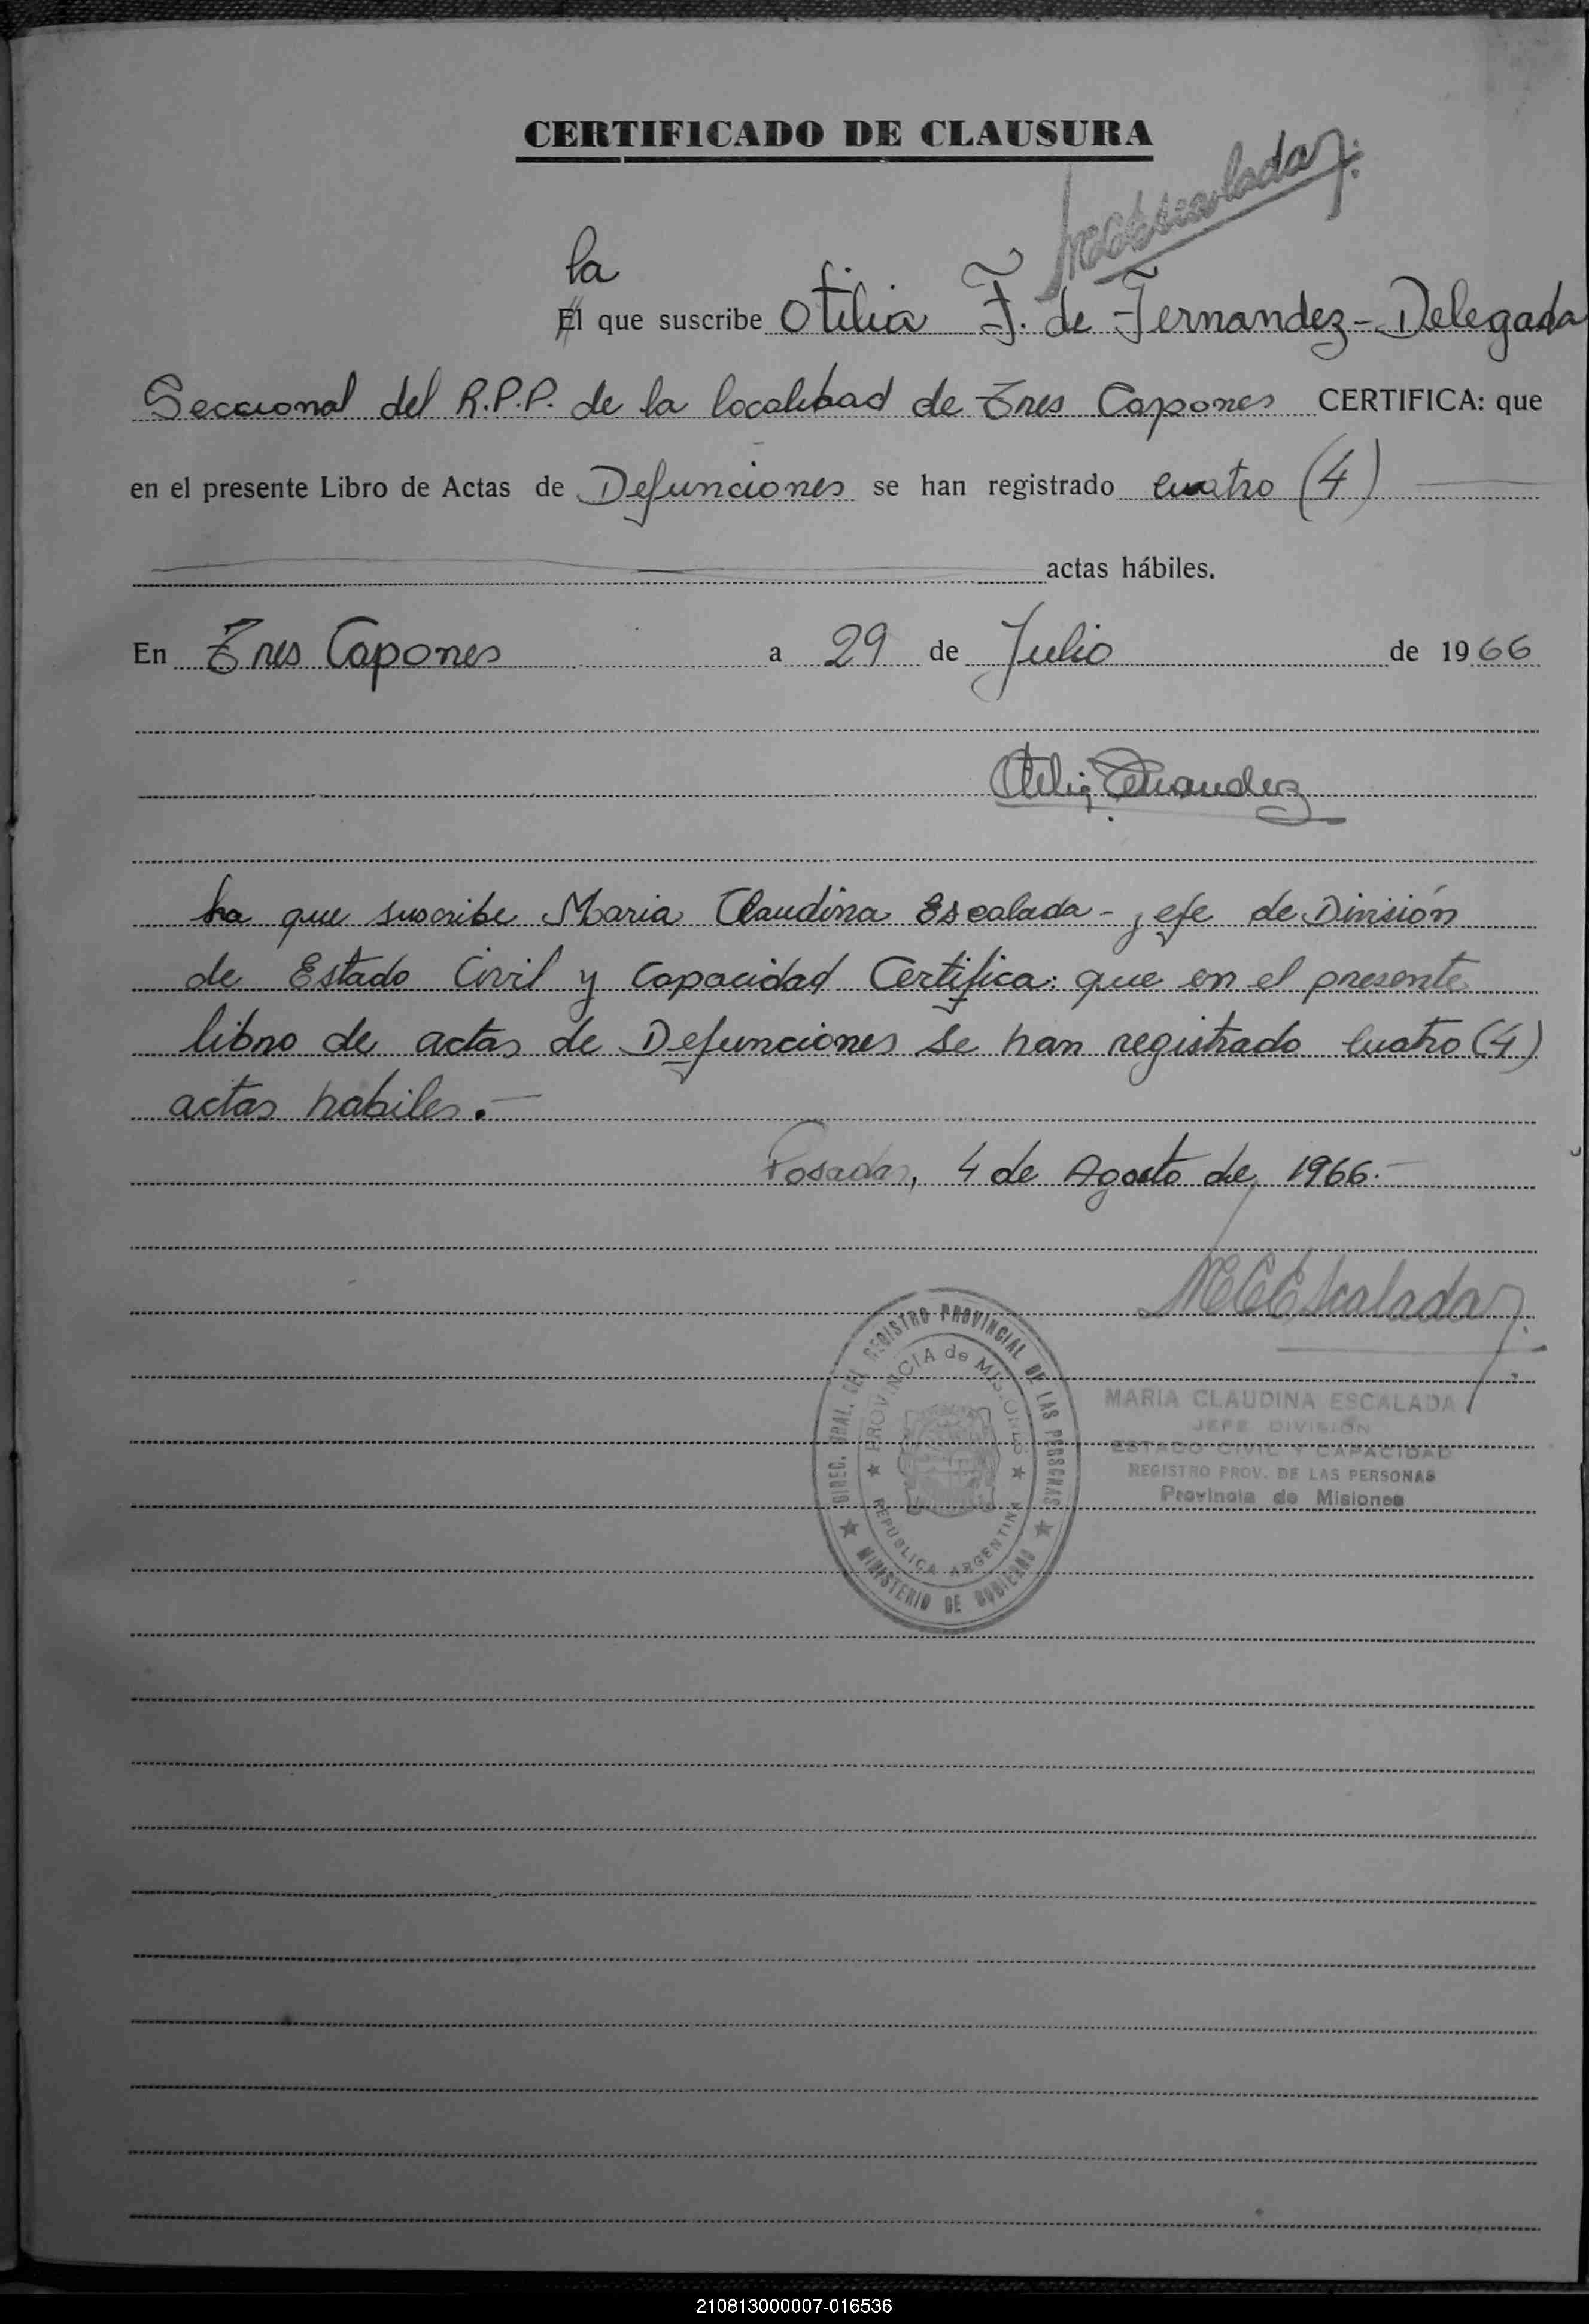 CERTIFICADO DE CLAUSURA
MCEscalada
la
El que suscribe Otilia F. de Fernandez - Delegada
Seccional del R.P.P. de la localidad de Tres Capones CERTIFICA: que
en el presente Libro de Actas de Defunciones se han registrado cuatro (4)
actas hábiles.
En Tres Capones a 29 de Julio de 1966
Otilia Fernandez
La que suscribe Maria Claudina Escalada - jefe de División
de Estado Civil y Capacidad Certifica: que en el presente
libro de actas de Defunciones se han registrado cuatro (4)
actas habiles.-
Posadas, 4 de Agosto de 1966.-
MCEscalada
DIREC. GRAL. DEL REGISTRO PROVINCIAL DE LAS PERSONAS
PROVINCIA de MISIONES
REPUBLICA ARGENTINA
MINISTERIO DE GOBIERNO
MARIA CLAUDINA ESCALADA
JEFE DIVISIÓN
ESTADO CIVIL Y CAPACIDAD
REGISTRO PROV. DE LAS PERSONAS
Provincia de Misiones
210813000007-016536